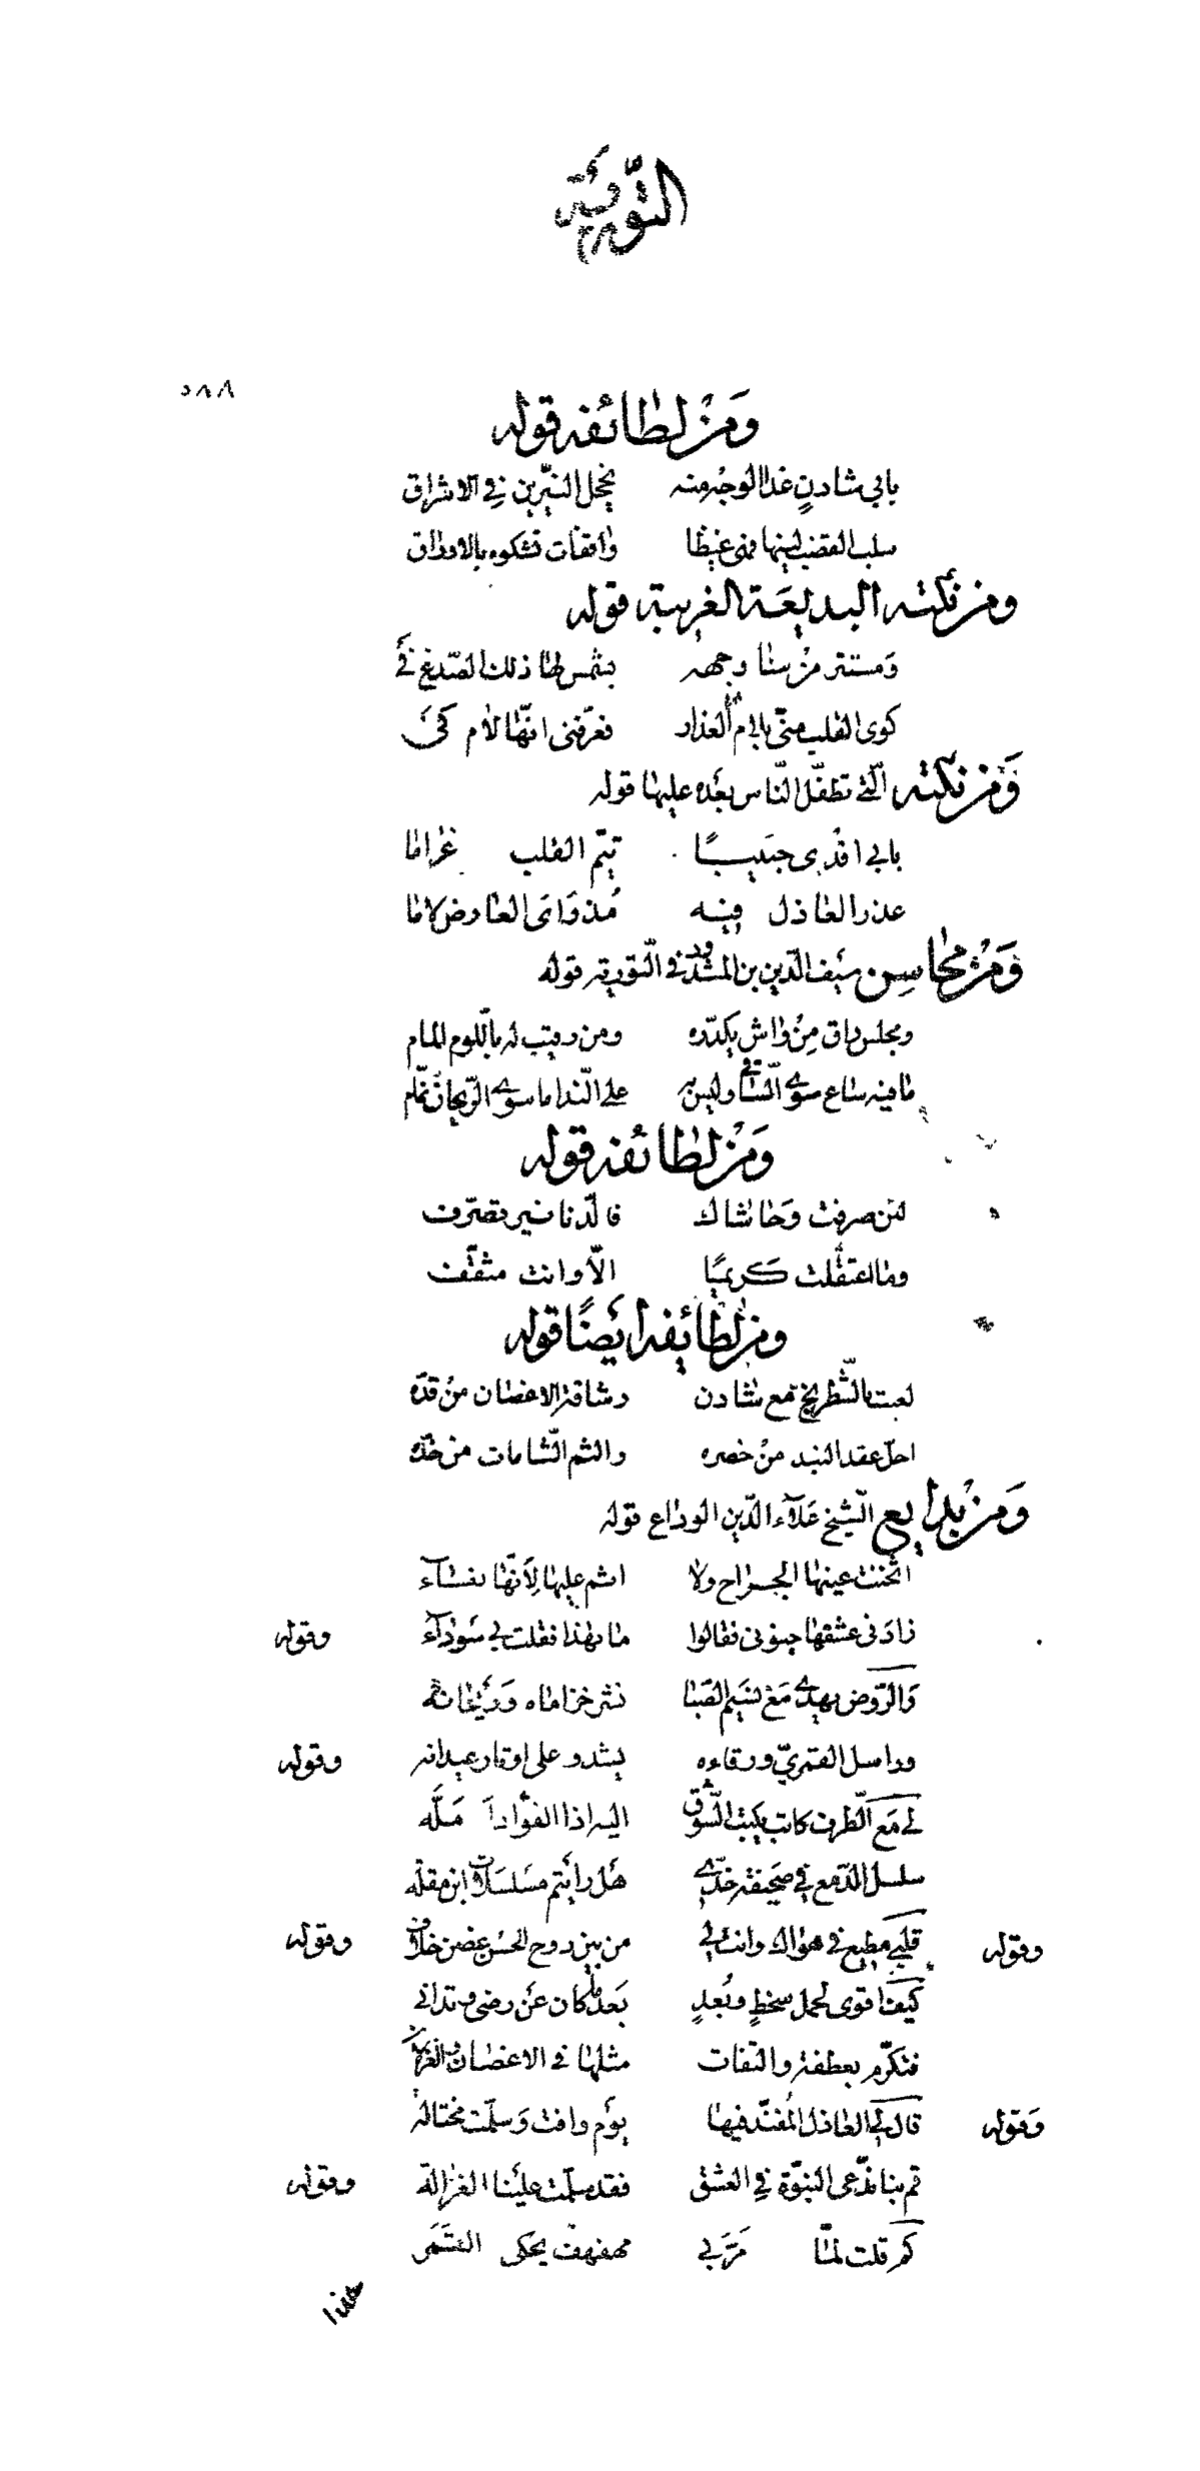 التورية
٥٨٨
ومن لطائفه قوله
بابي شادن غدا الوجه منه يخجل النيرين في الاشراق
سلب القضب لينها فهي غيظا واقفات تشكوه بالاوراق
ومن نكته البديعة الغريبة قوله
ومستتر من سنا وجهه بشمس لها ذلك الصدغ في
كوى القلب مني بلام العذار فعرفني انها لام كي
ومن نكته التي تطفل الناس بعده عليها قوله
بابي افدي حبيبًا تيم القلب غراما
عذر العاذل فيه مذ راى العارض لاما
ومن محاسن سيف الدين بن المشد في التورية قوله
ومجلس راق من واش يكدره ومن رقيب له باللوم المام
ما فيه ساع سوى الساقي وليس به على النداما سوى الريحان نمام
ومن لطائفه قوله
لئن صرفت وحاشاك فالدنانير تصرف
وما اعتقلت كريمًا الا وانت مثقف
ومن لطايفه ايضًا قوله
لعبت بالشطرنج مع شادن رشاقة الاغصان من قده
احل عقد البند من خصره والثم الشامات من خده
ومن بدايع الشيخ علاء الدين الوداع قوله
اثخنت عينها الجراح ولا اثم عليها لانها نعساء
زاد في عشقها جنوني فقالوا ما بهذا فقلت بي سوداء وقوله
والروض يهدي مع نسيم الصبا نشر خزاماه وريحانه
وراسل القمري ورقاءه يشدو على اوتار عيدانه وقوله
لي مع الطرف كاتب يكتب الشوق اليه اذا الفؤاد امله
سلسل الدمع في صحيفة خدي هل رايتم مسلسلات ابن مقله
وقوله قلبي مطيع في هواك وانت لي من بين روح الحسن غصن خلاف وقوله
كيف اقوى لحمل سخط وبعد بعد ما كان عن رضى وتداني
فتكرم بعطفة والتفات مثلها في الاغصان والغزلان
وقوله قال لي العاذل المفند فيها يوم وافت وسلمت مختاله
قم بنا ندعي النبوة في العشق فقد سلمت علينا الغزالة وقوله
كم قلت لما مر بي مهفهف يحكي القمر
هذا